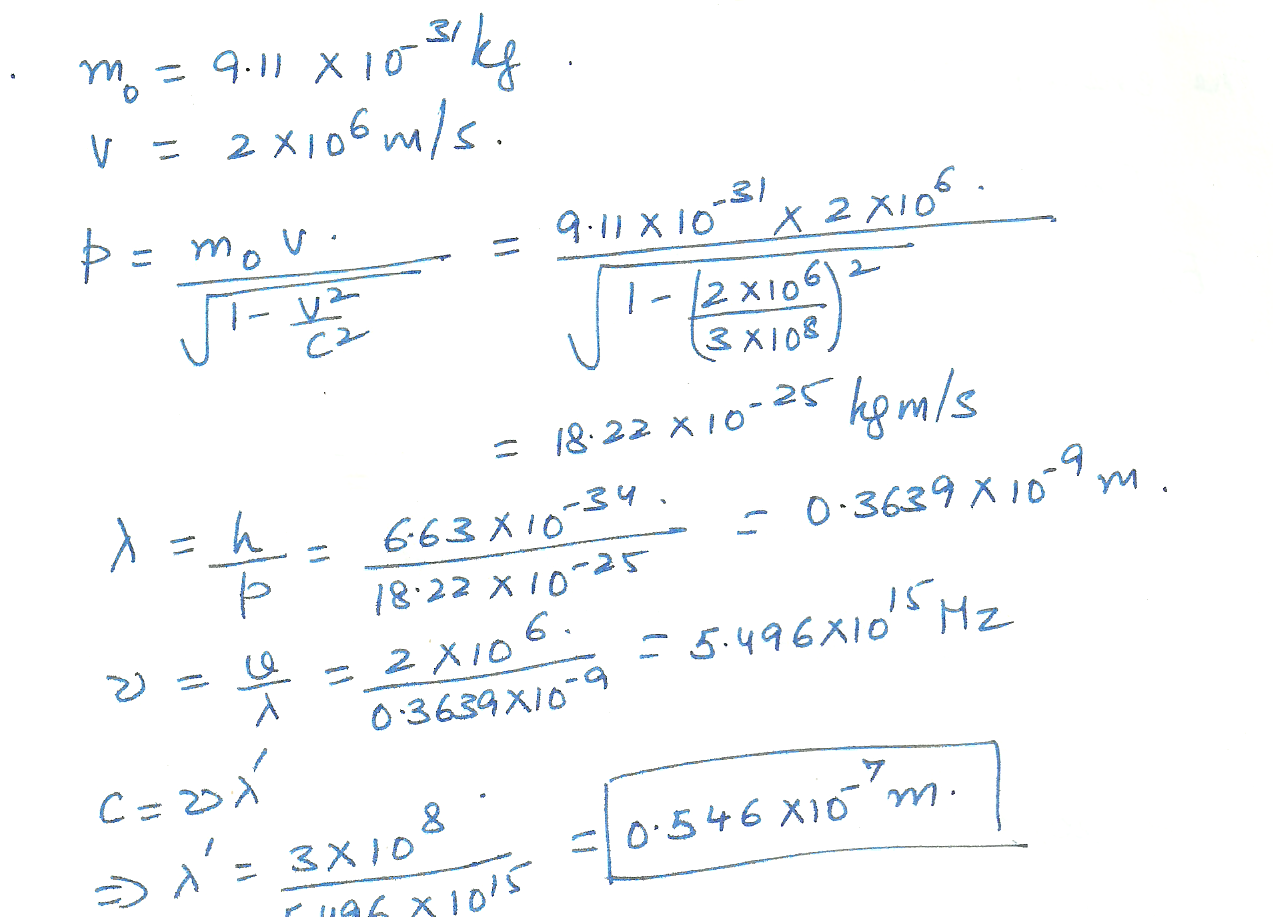 m₀ = 9.11 × 10⁻³¹ kg.
v = 2 × 10⁶ m/s.
p = m₀v / √(1 - v²/c²) = 9.11 × 10⁻³¹ × 2 × 10⁶ / √(1 - (2 × 10⁶ / 3 × 10⁸)²)
= 18.22 × 10⁻²⁵ kg m/s
λ = h/p = 6.63 × 10⁻³⁴ / 18.22 × 10⁻²⁵ = 0.3639 × 10⁻⁹ m.
ν = v/λ = 2 × 10⁶ / 0.3639 × 10⁻⁹ = 5.496 × 10¹⁵ Hz
C = νλ′
⇒ λ′ = 3 × 10⁸ / 5.496 × 10¹⁵ = 0.546 × 10⁻⁷ m.